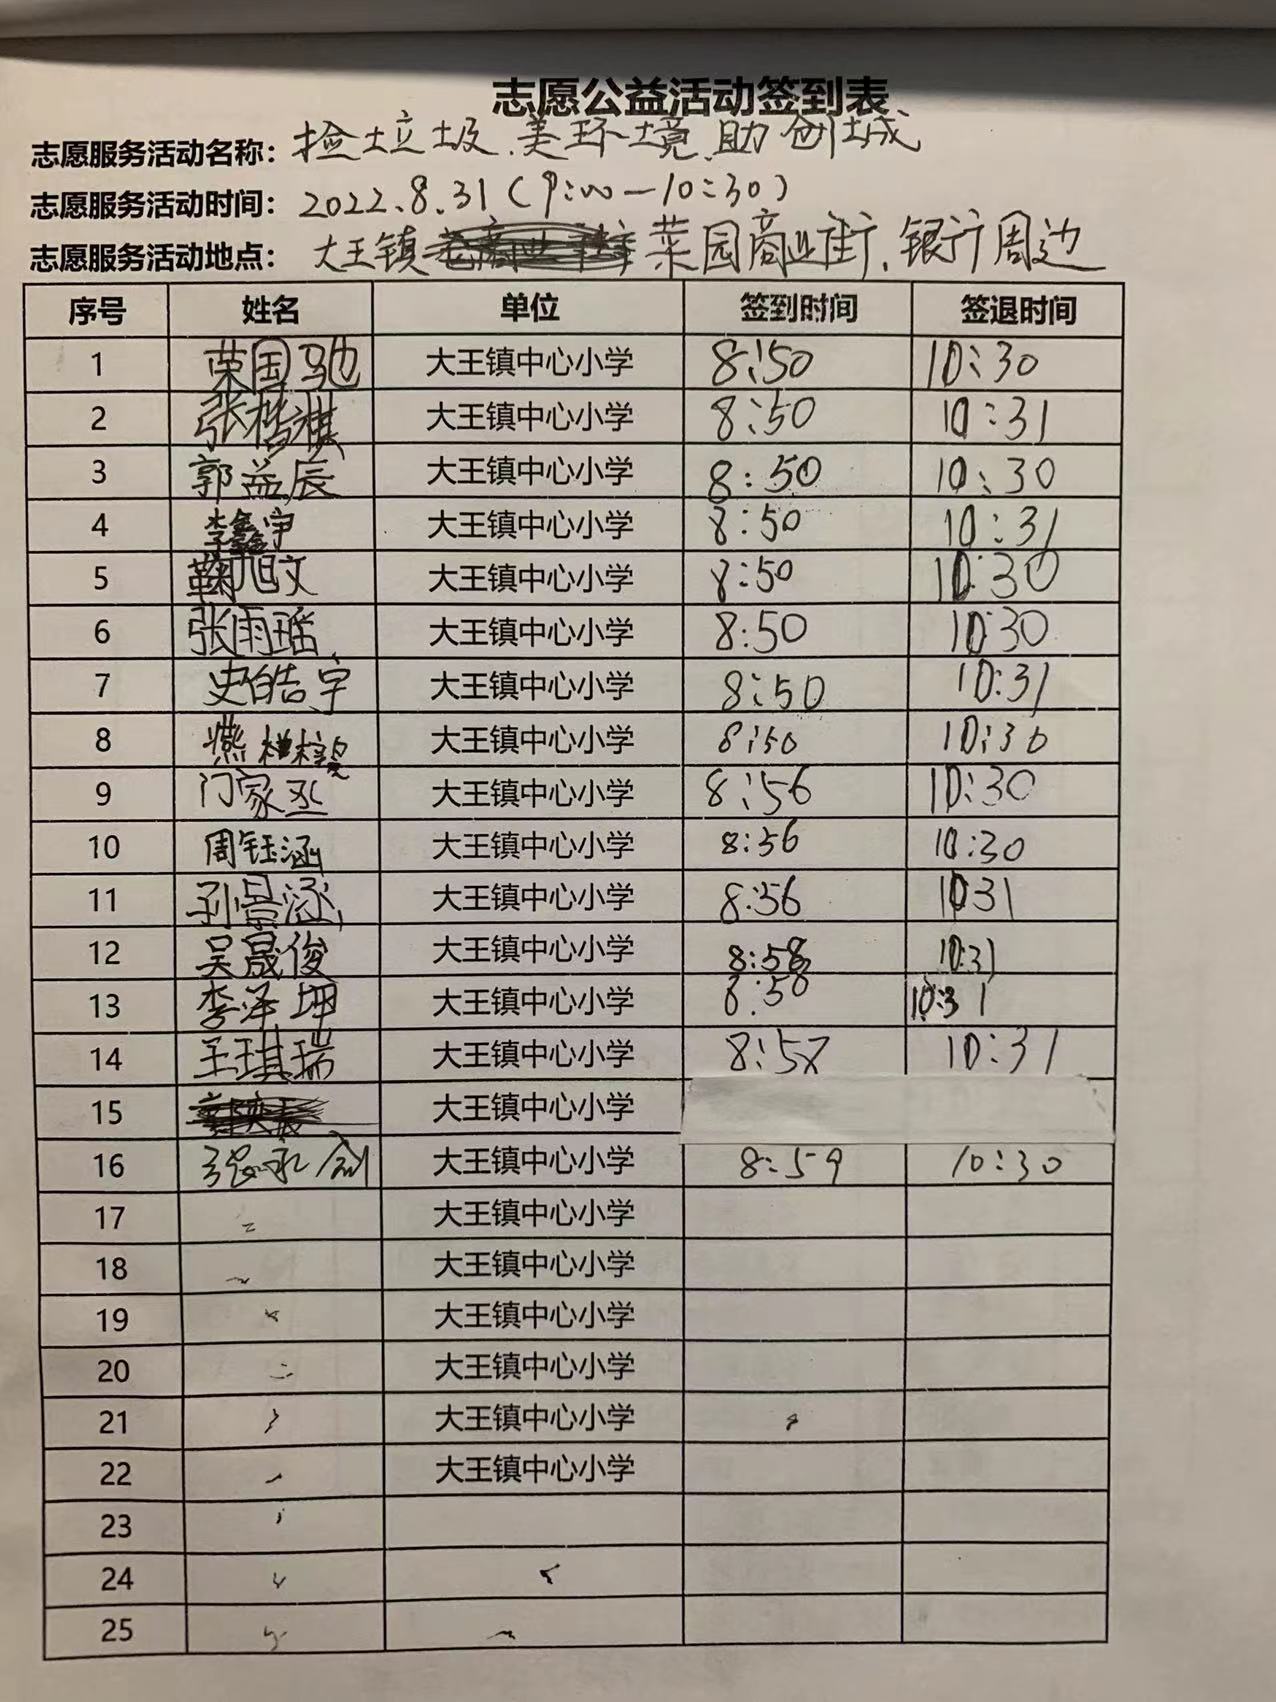 志愿公益活动签到表
志愿服务活动名称： 捡垃圾、美环境、助创城
志愿服务活动时间： 2022.8.31（9:00—10:30）
志愿服务活动地点： 大王镇 菜园商业街、银行周边
序号 姓名 单位 签到时间 签退时间
1 荣国驰 大王镇中心小学 8:50 10:30
2 张楷祺 大王镇中心小学 8:50 10:31
3 郭益辰 大王镇中心小学 8:50 10:30
4 李鑫宇 大王镇中心小学 8:50 10:31
5 鞠旭文 大王镇中心小学 8:50 10:30
6 张雨瑶 大王镇中心小学 8:50 10:30
7 史皓宇 大王镇中心小学 8:50 10:31
8 大王镇中心小学 8:50 10:30
9 门家丞 大王镇中心小学 8:56 10:30
10 周钰涵 大王镇中心小学 8:56 10:30
11 孙景涵 大王镇中心小学 8:56 10:31
12 吴晟俊 大王镇中心小学 8:58 10:31
13 李泽坤 大王镇中心小学 8:58 10:31
14 王琪瑞 大王镇中心小学 8:58 10:31
15 大王镇中心小学
16 张永创 大王镇中心小学 8:59 10:30
17 大王镇中心小学
18 大王镇中心小学
19 大王镇中心小学
20 大王镇中心小学
21 大王镇中心小学
22 大王镇中心小学
23
24
25